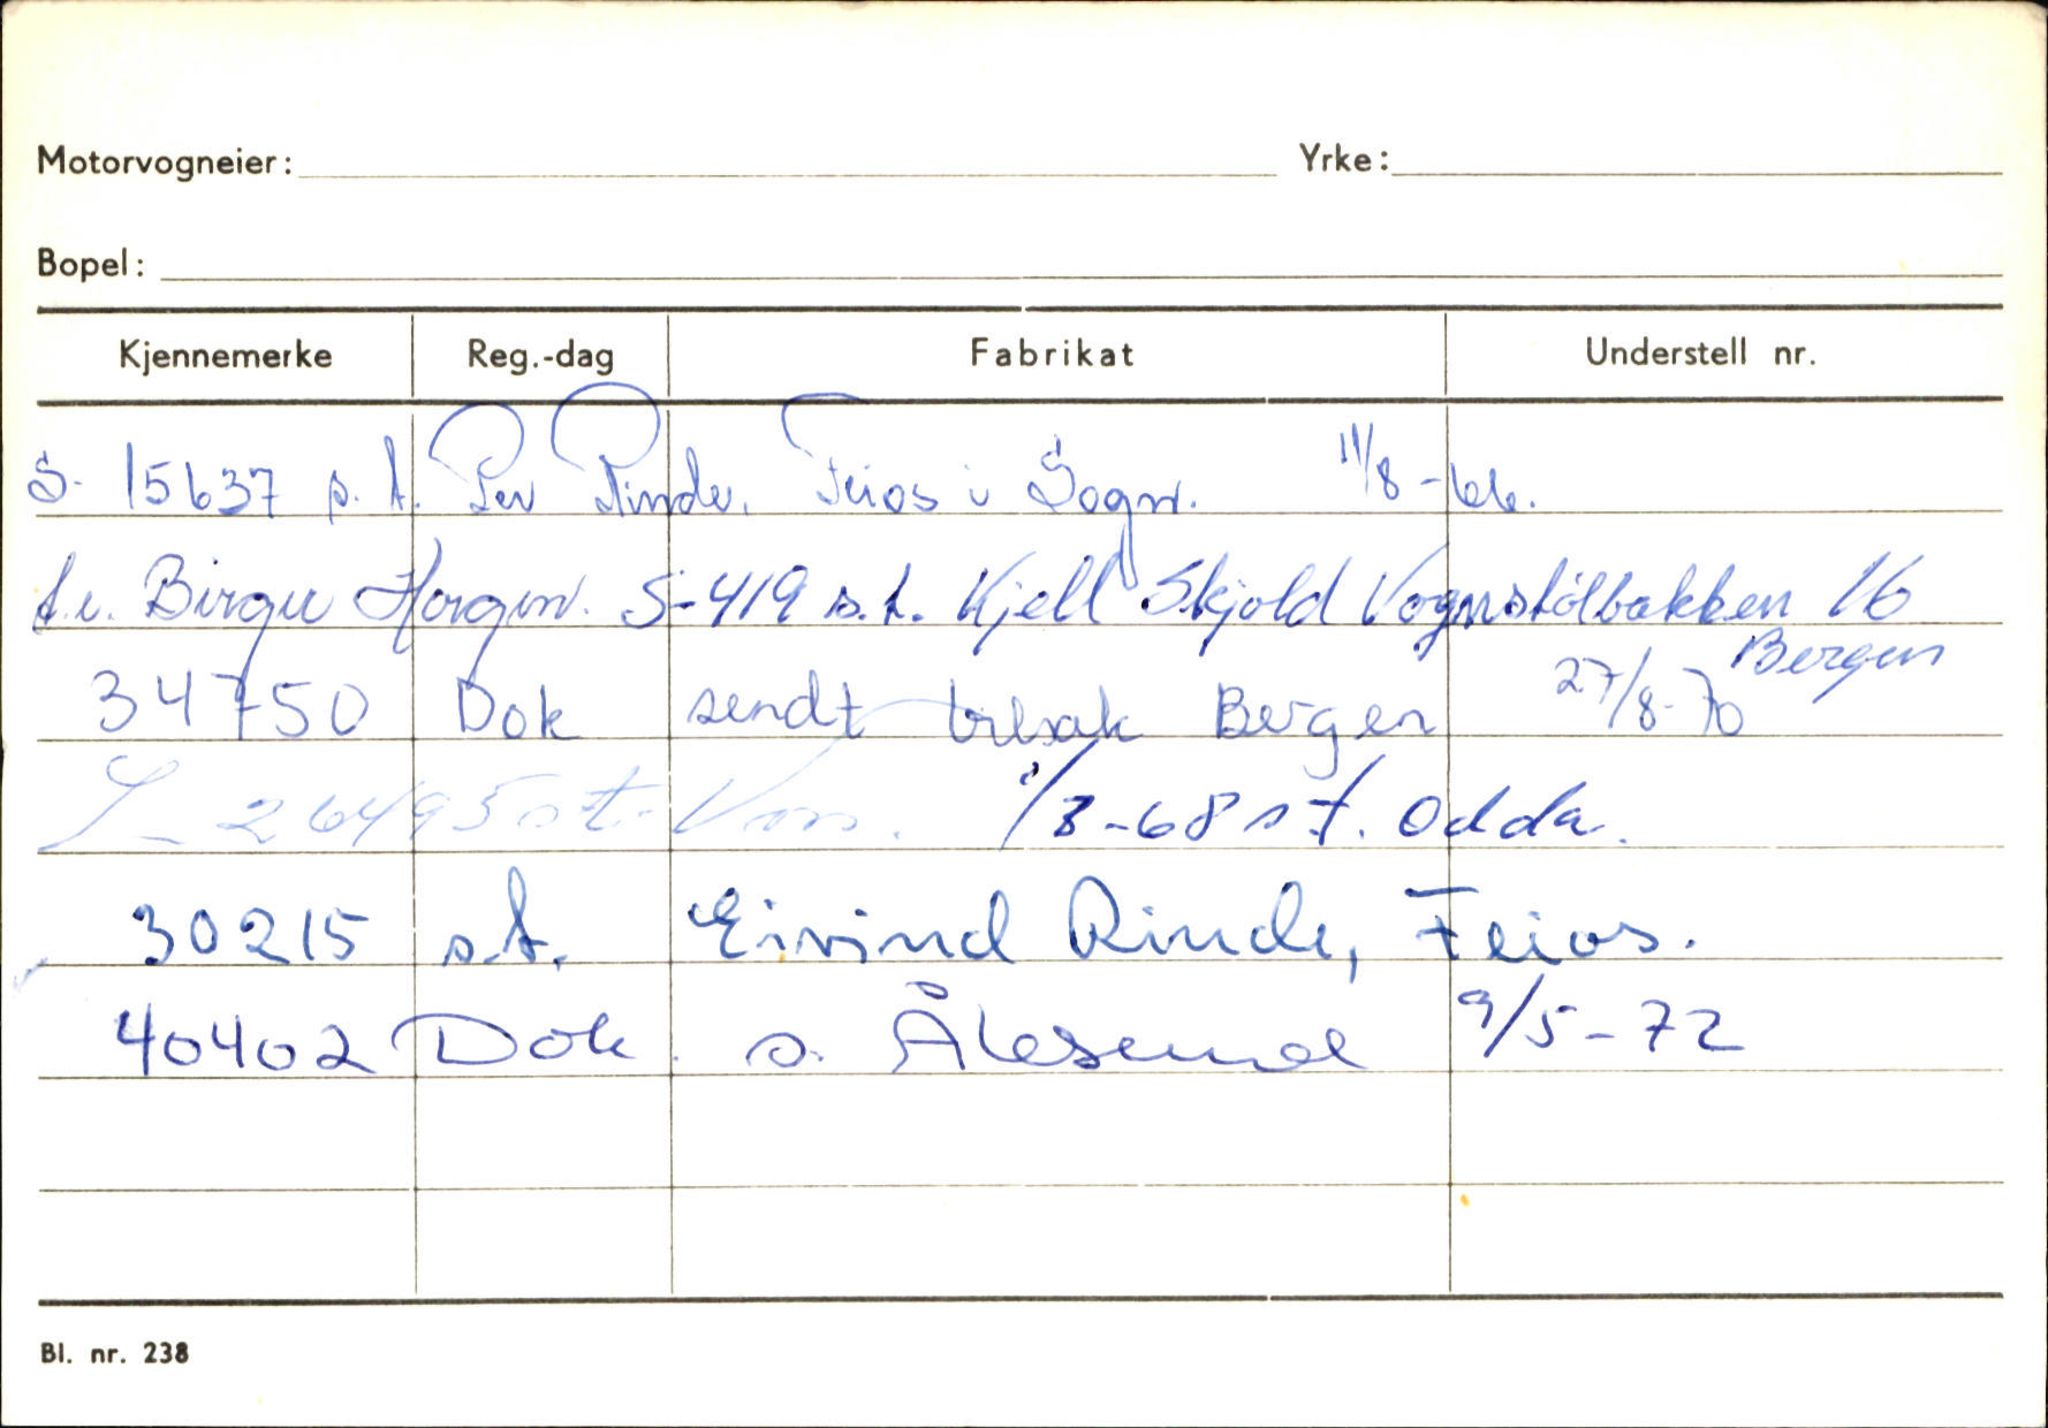 Motorvogneier: Yrke:
Bopel:
Kjennemerke Reg.-dag Fabrikat Understell nr.
S- 15637 s.t. Per Rinde, Feios i Sogn. 11/8-66.
Birger Horgen. S-419 s.t. Kjell Skjold Vognstølbakken 16
Bergen
34750 Dok sendt Bergen 27/8-70
26495 st. 1/8-68 st. Odda.
30215 s.t. Eivind Rinde, Feios.
40402 Dok s. Ålesund 9/5-72
Bl. nr. 238